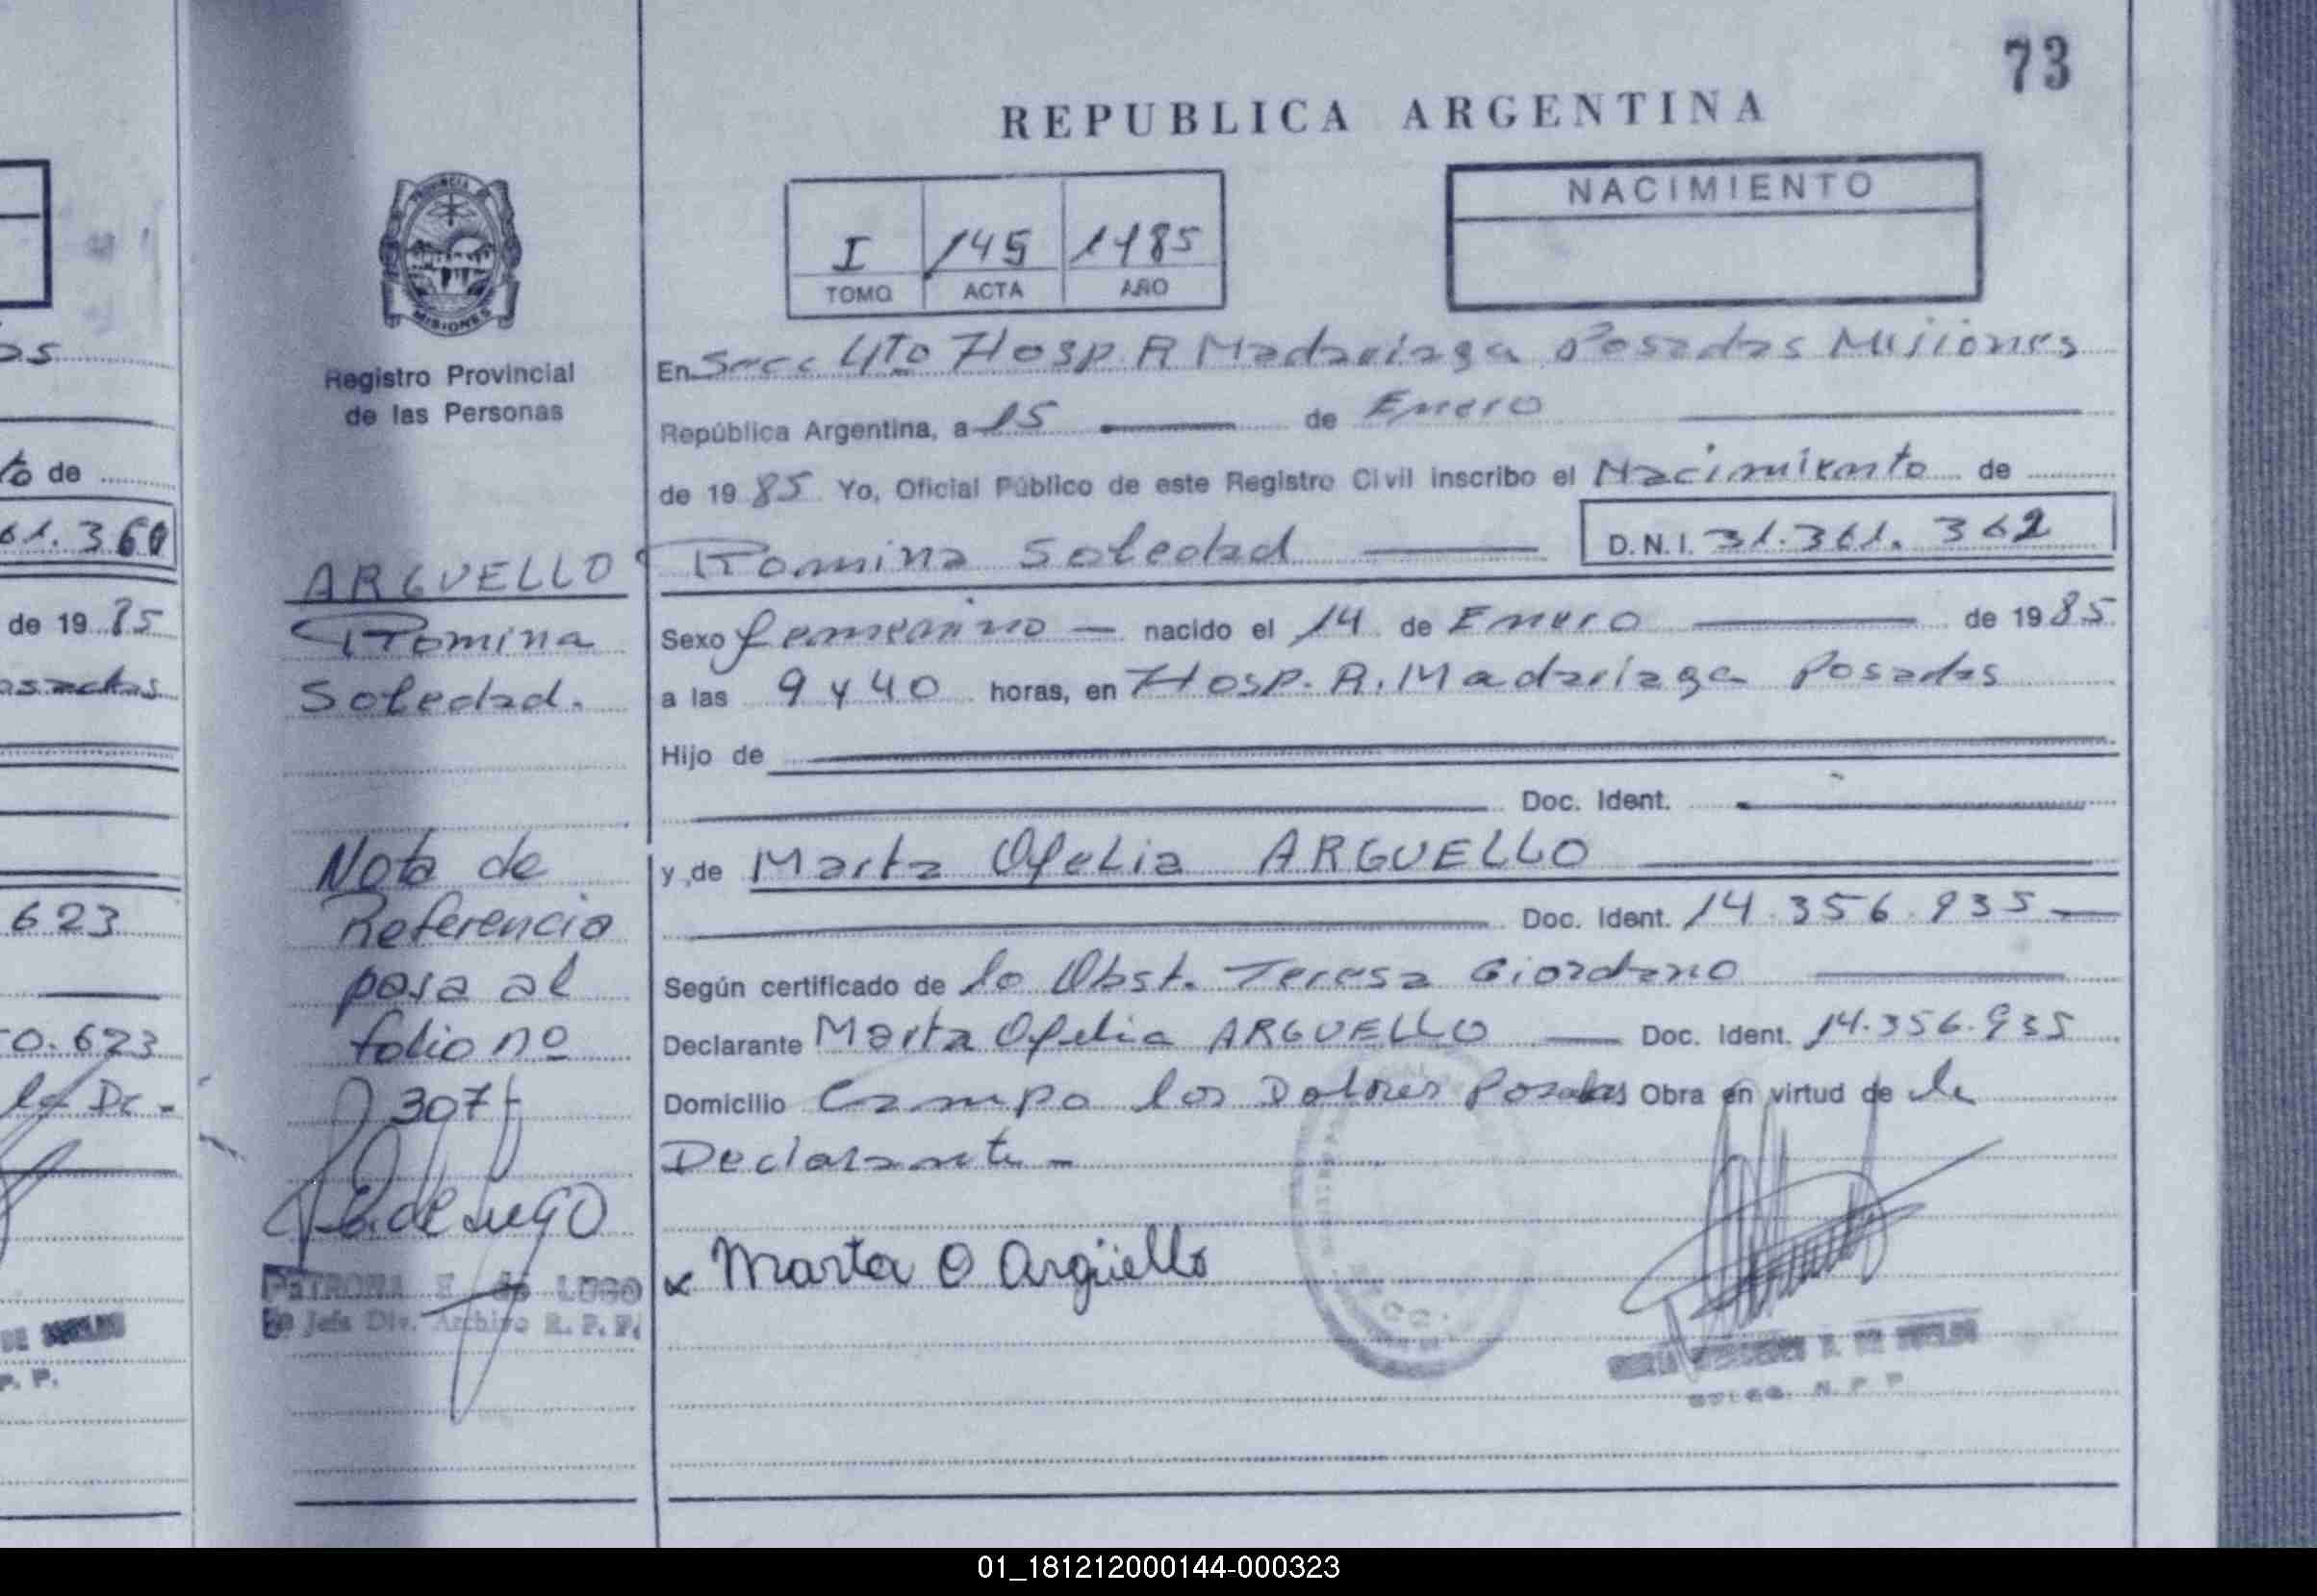 73
REPUBLICA ARGENTINA
PROVINCIA DE
MISIONES
I 145 1985
TOMO ACTA AÑO
NACIMIENTO
Registro Provincial
de las Personas
En Secc 4to Hosp R Madariaga Posadas Misiones
República Argentina, a 15 de Enero
de 1985 Yo, Oficial Público de este Registro Civil inscribo el Nacimiento de
Romina Soledad D.N.I. 31.361.362
Sexo femenino - nacido el 14 de Enero de 1985
a las 9 y 40 horas, en Hosp. R. Madariaga Posadas
Hijo de
Doc. Ident.
y de Marta Ofelia ARGUELLO
Doc. Ident. 14.356.935
Según certificado de la Obst. Teresa Giordano
Declarante Marta Ofelia ARGUELLO Doc. Ident. 14.356.935
Domicilio Campo los Dolores Posadas Obra en virtud de la
Declarante -
Marta O Argüello
ARGUELLO
Romina
Soledad.
Nota de
Referencia
pasa al
folio nº
307
de Lugo
PETRONA E. de LUGO
Jefe Div. Archivo R. P. P.
R. P. P.
to de
61.360
de 1985
623
0.623
la De-
P. P.
01_181212000144-000323